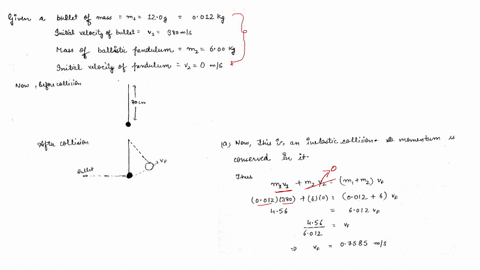 Given a bullet of mass = m₁ = 12.0g = 0.012 kg
Initial velocity of bullet = v₁ = 380 m/s
Mass of ballistic pendulum = m₂ = 6.00 kg
Initial velocity of pendulum = v₂ = 0 m/s
Now, before collision
70cm
After collision
bullet
vf
(a) Now, This is an inelastic collision. So momentum is
conserved in it.
Thus
0
m₁v₁ + m₂ v₂ = (m₁+m₂) vf
(0.012)(380) + (6)(0) = (0.012 + 6) vf
4.56 = 6.012 vf
4.56 / 6.012 = vf
⇒ vf = 0.7585 m/s